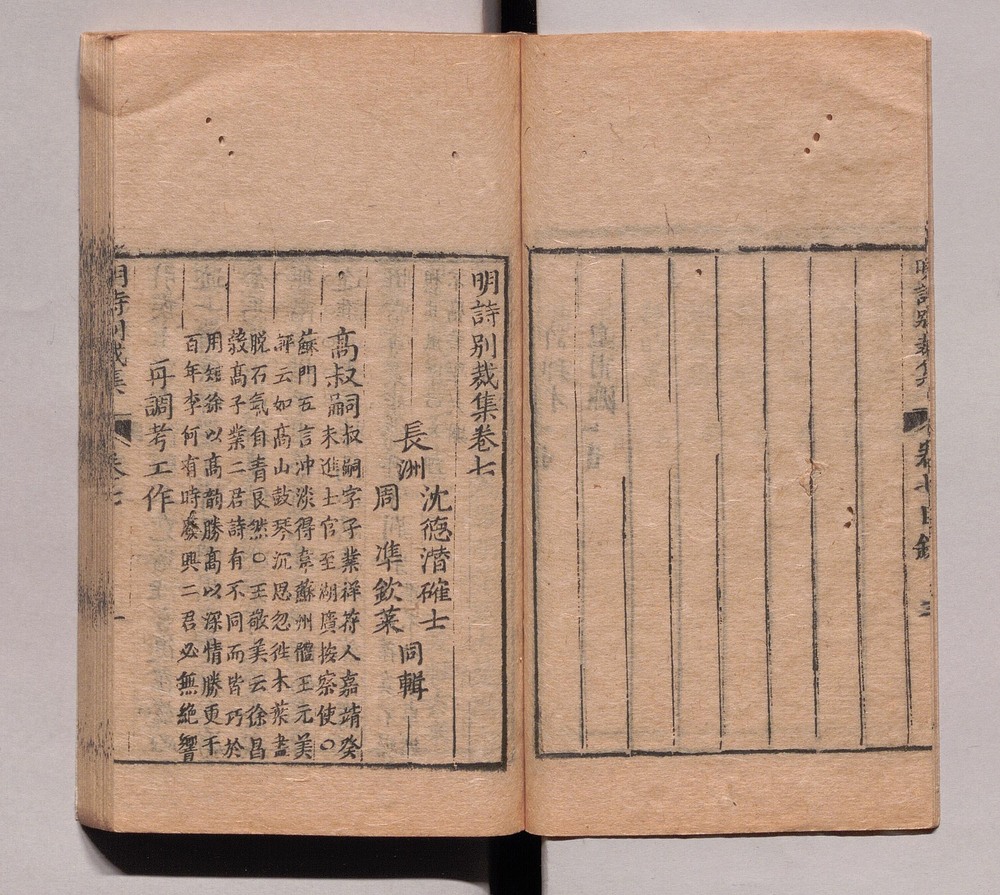 明詩別裁集 卷七目錄
明詩別裁集卷七
長洲
沈德潛確士
周準欽萊
同輯
髙叔嗣叔嗣字子業祥符人嘉靖癸
未進士官至湖廣按察使○
蘇門五言冲淡得韋蘇州體王元美
評云如髙山鼓琴沉思忽徃木葉盡
脱石氣自青良然○王敬美云徐昌
榖髙子業二君詩有不同而皆巧於
用短徐以髙韵勝髙以深情勝更千
百年李何有時廢興二君必無絶響
再調考工作
明詩別裁集 卷七 一